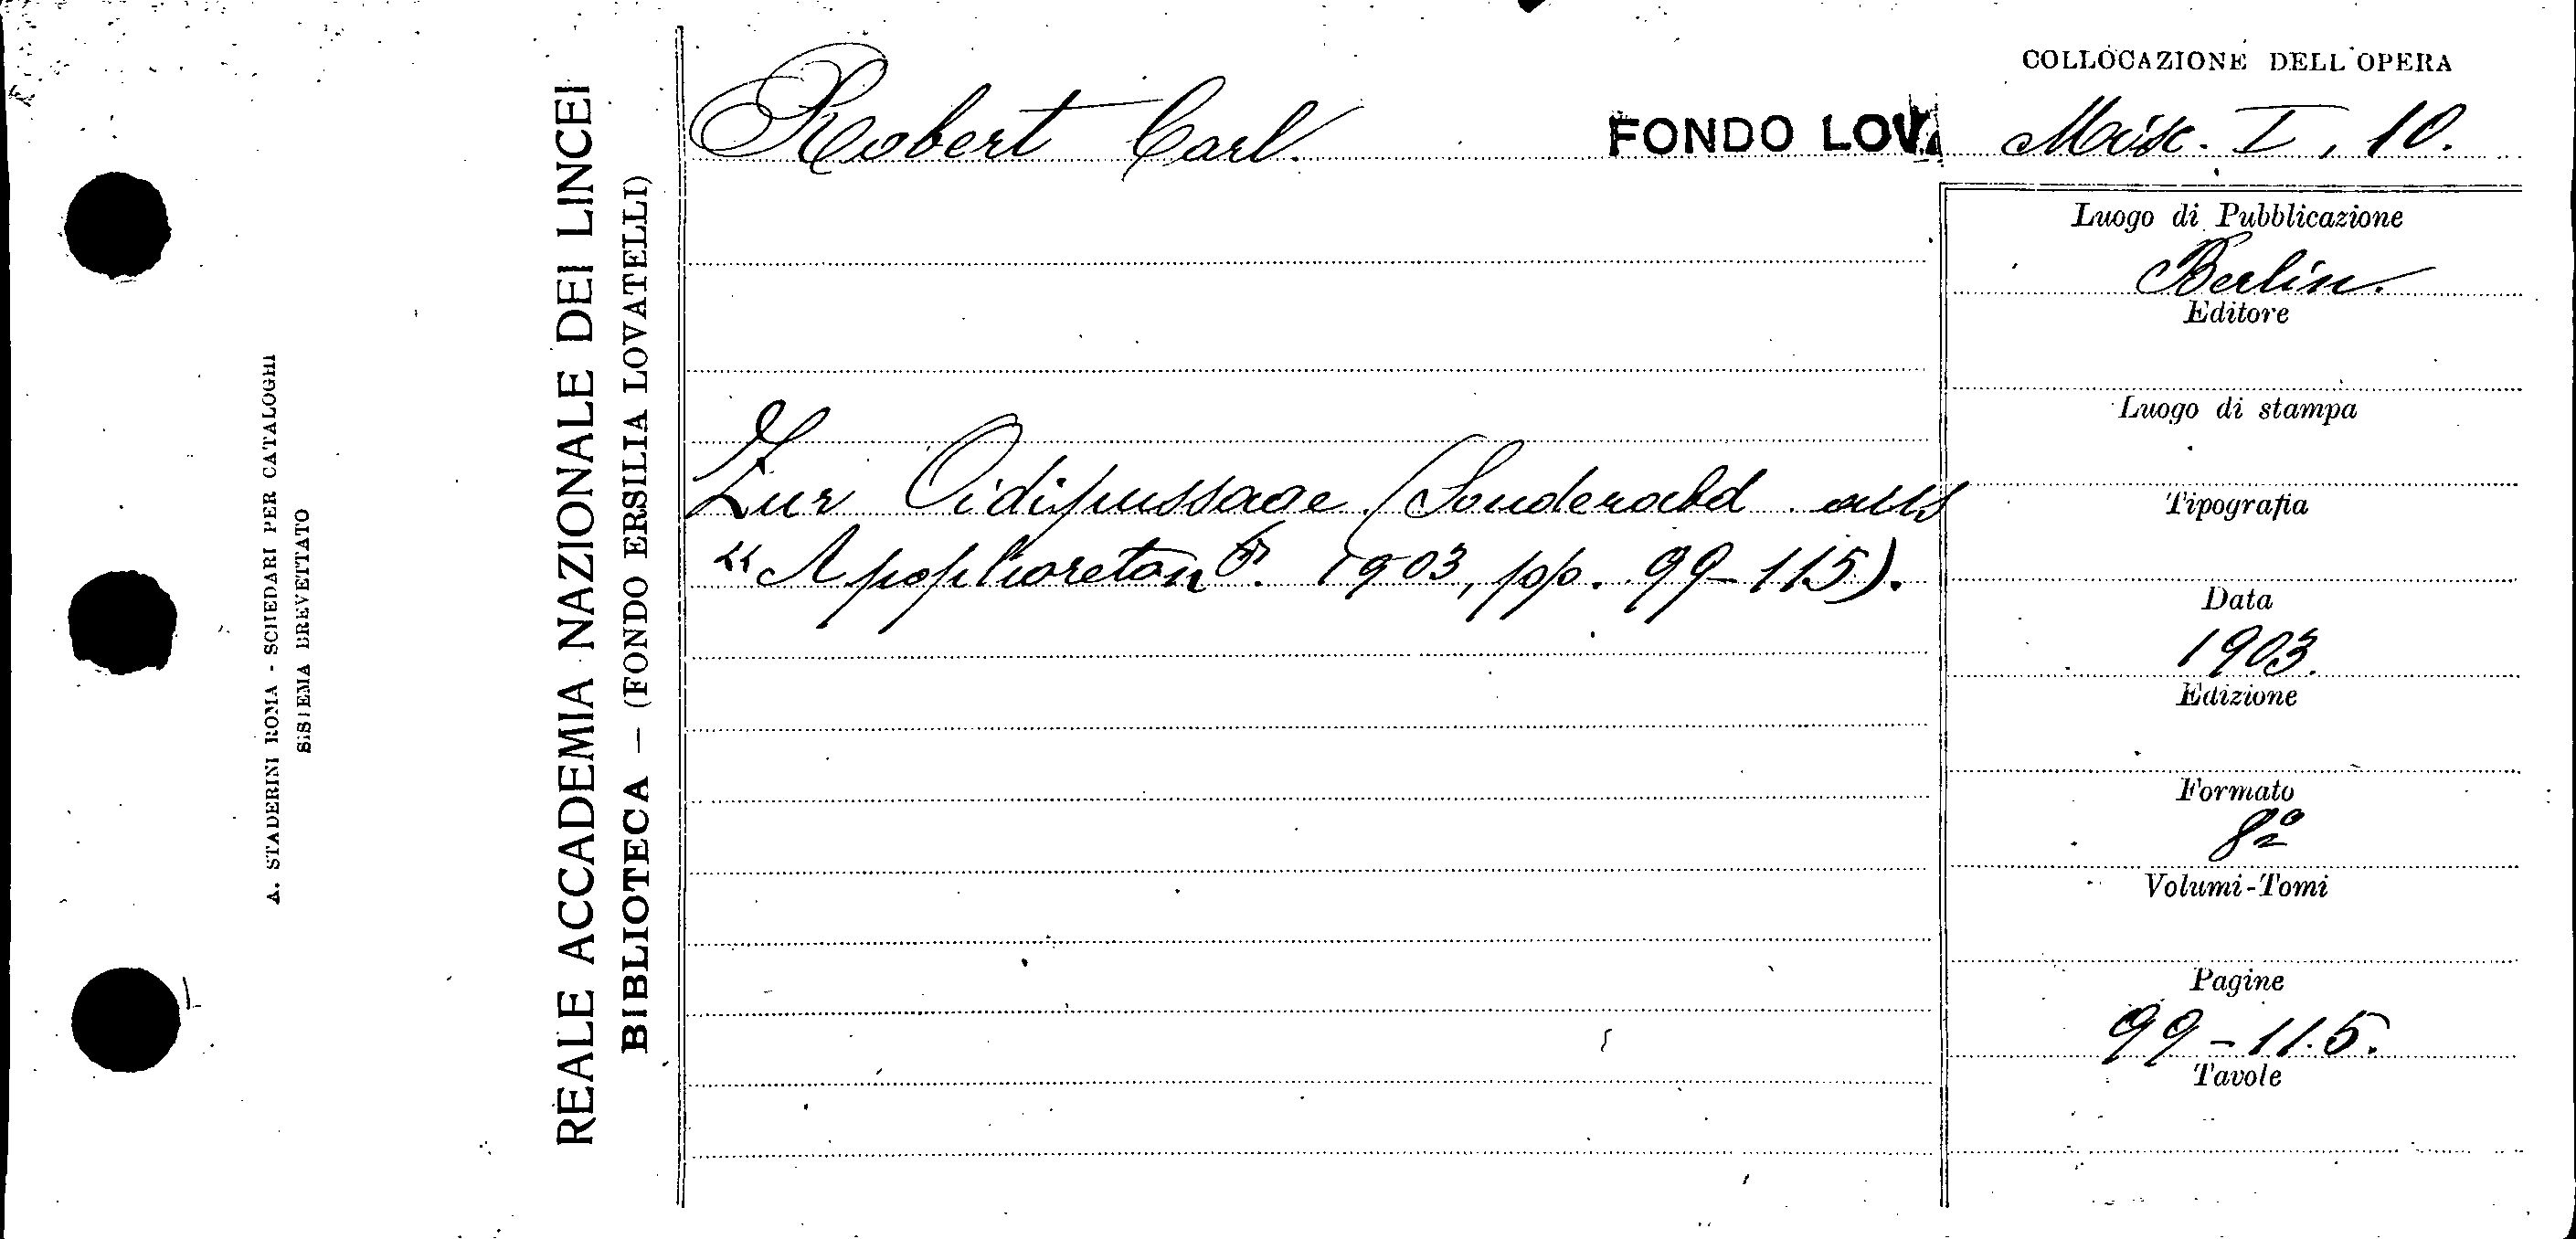 COLLOCAZIONE DELL'OPERA
Robert Carl.
FONDO LOVA
Misc. I, 10.
Luogo di Pubblicazione
Berlin.
Editore
Luogo di stampa
Zur Oidipussage (Sonderabd aus
Tipografia
"Apophoreton". 1903, pp. 99-115).
Data
1903.
Edizione
Formato
8º
Volumi-Tomi
Pagine
99-115.
Tavole
REALE ACCADEMIA NAZIONALE DEI LINCEI
BIBLIOTECA — (FONDO ERSILIA LOVATELLI)
A. STADERINI ROMA - SCHEDARI PER CATALOGHI
SISTEMA BREVETTATO